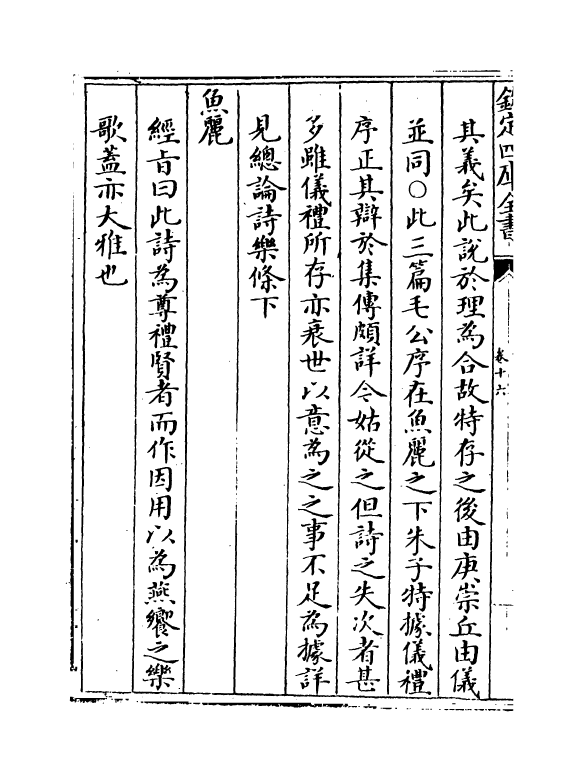 欽定四庫全書
卷十六
其義矣此説於理為合故特存之後由庚崇丘由儀
並同○此三篇毛公序在魚麗之下朱子特據儀禮
序正其辯於集傳頗詳今姑從之但詩之失次者甚
多雖儀禮所存亦衰世以意為之之事不足為據詳
見總論詩樂條下
魚麗
經旨曰此詩為尊禮賢者而作因用以為燕饗之樂
歌蓋亦大雅也